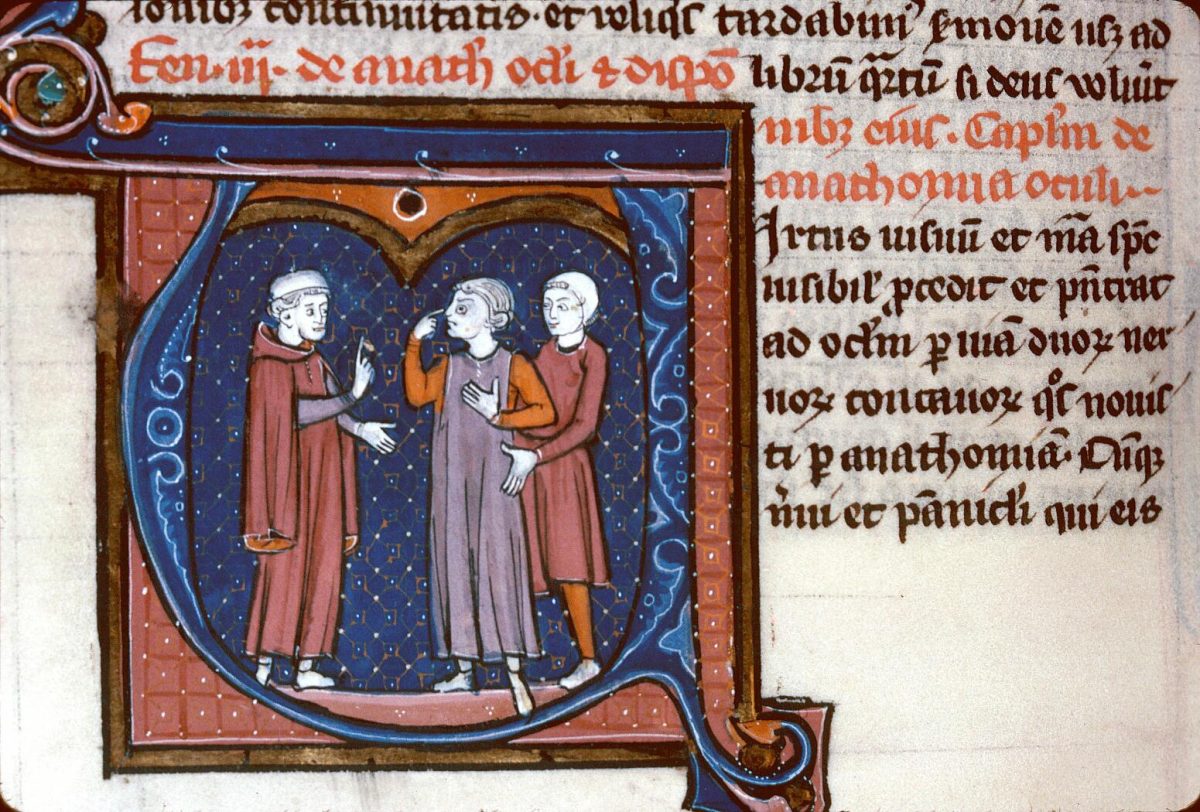 ionibꝫ continuitatis· et reliqͥs tardabimꝰ sermonē usqꝫ ad
Fen·iij· de anath ocli & dispō librū qͣrtū si deus voluīt
nibꝫ eius· Capłm de
anathomia oculi
irtus uisiuū et
uisibil' ꝓcedit et pn̄trat
ad ocłm ꝑ uiā duoꝝ ner
uoꝝ concauoꝝ qͦs nouis
ti ꝑ anathomiā· Cūqꝫ
n̄ui et pānicłi qui eis